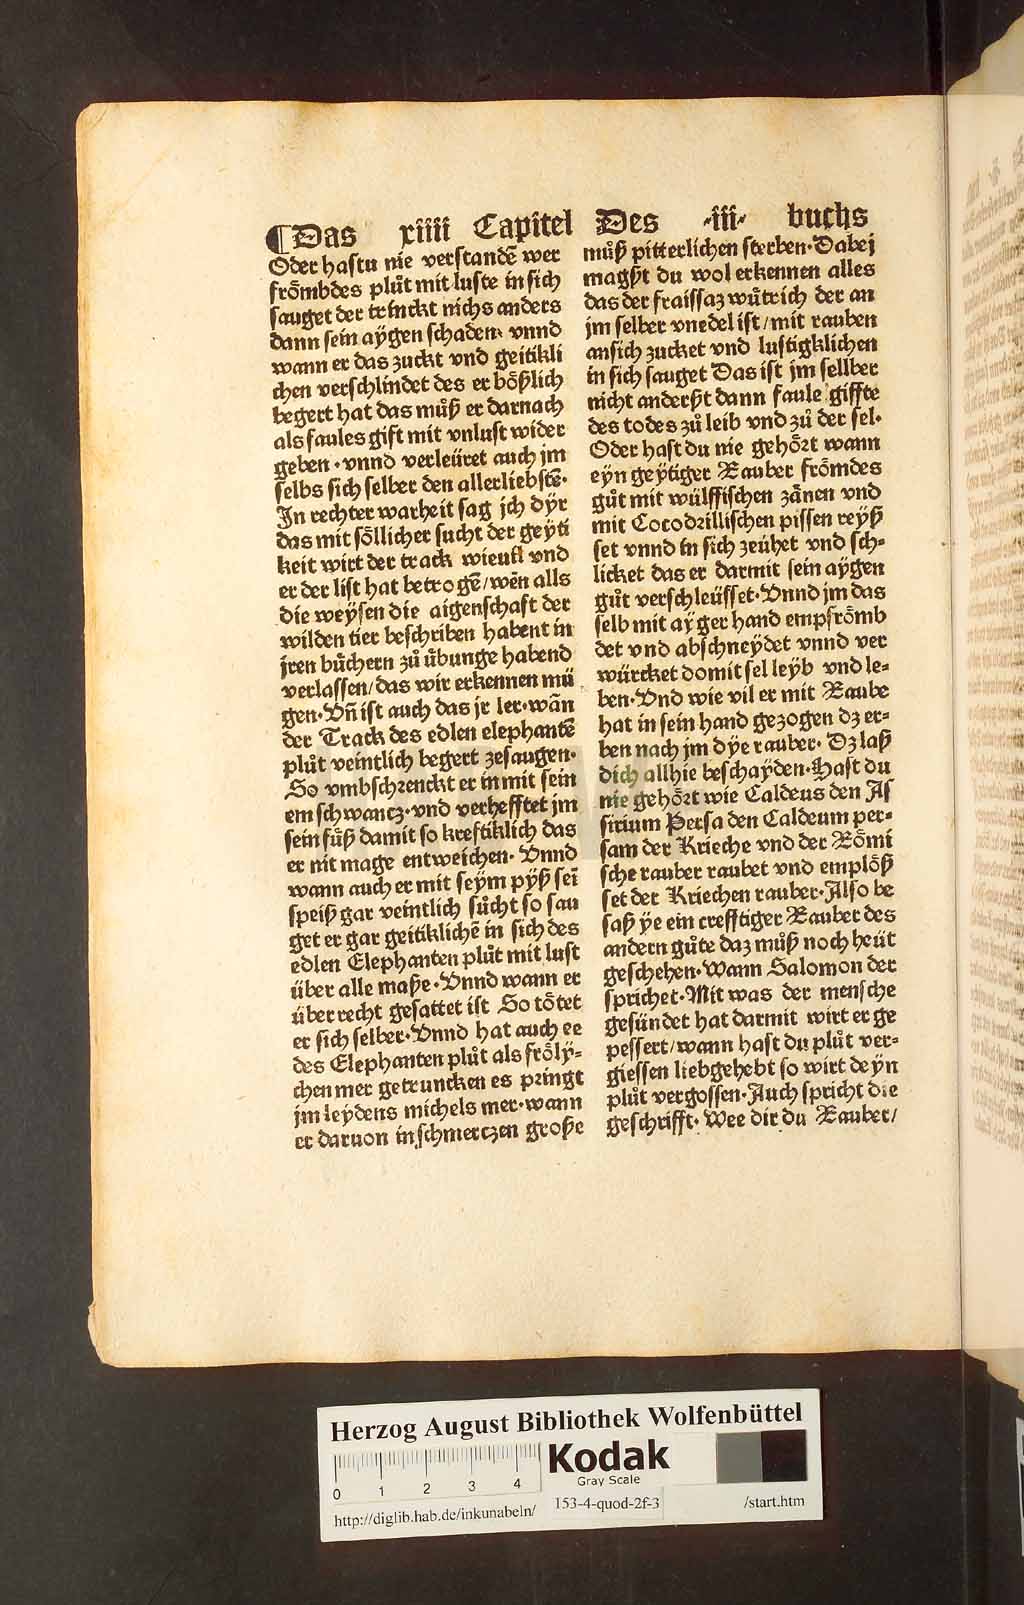 ¶Das xiiii Capitel Des .iii. buchs
Oder hastu nie verstandē wer
frömbdes plůt mit luste in sich
sauget der trinckt nichs anders
dann sein aÿgen schaden. vnnd
wann er das zuckt vnd geitikli
chen verschlindet des er bößlich
begert hat das můß er darnach
als faules gift mit vnlust wider
geben. vnnd verleüret auch jm
selbs sich selber den allerliebstē.
In rechter warheit sag jch dÿr
das mit söllicher sucht der geÿti
keit wirt der track wieutl vnd
er der list hat betrogē/wēn alls
die weÿsen die aigenschaft der
wilden tier beschriben habent in
jren bůchern zů übunge habend
verlassen/das wir erkennen mü
gen. Vñ ist auch das jr ler. wān
der Track des edlen elephantē
plůt veintlich begert zesaugen.
So vmbschrenckt er in mit sein
em schwancz. vnd verhefftet jm
sein fůß damit so kreftiklich das
er nit mage entweichen. Vnnd
wann auch er mit seÿm pÿß sei
speiß gar veintlich sůcht so sau
get er gar geitiklichē in sich des
edlen Elephanten plůt mit lust
über alle maße. Vnnd wann er
überrecht gesattet ist So tötet
er sich selber. Vnnd hat auch ee
des Elephanten plůt als frölÿ-
chen mer getruncken es pringt
jm leÿdens michels mer. wann
er daruon in schmerczen große
můß pitterlichen sterben. Dabej
magst du wol erkennen alles
das der fraissaz wůtrich der an
jm selber vnedel ist/mit rauben
ansich zucket vnd lustigklichen
in sich sauget Das ist jm sellber
nicht anderst dann faule giffte
des todes zů leib vnd zů der sel.
Oder hast du nie gehört wann
eÿn geÿtiger Rauber frömdes
gůt mit wülffischen zänen vnd
mit Cocodrillischen pissen reÿß
set vnnd in sich zeühet vnd sch-
licket das er darmit sein aÿgen
gůt verschleüsset. Vnnd jm das
selb mit aÿger hand empfrömb
det vnd abschneÿdet vnnd ver
würcket domit sel leÿb vnd le-
ben. Vnd wie vil er mit Raube
hat in sein hand gezogen dz er-
ben nach jm dÿe rauber. Dz laß
dich allhie beschaÿden. Hast du
nie gehört wie Caldeus den As
sirium Persa den Caldeum per-
sam der Krieche vnd der Römi
sche rauber raubet vnd emplöß
set der Kriechen rauber. Also be
saß ÿe ein crefftiger Rauber des
andern gůte daz můß noch heüt
geschehen. Wann Salomon der
sprichet. Mit was der mensche
gesündet hat darmit wirt er ge
pessert/wann hast du plůt ver-
giessen liebgehebt so wirt deÿn
plůt vergossen. Auch spricht die
geschrifft. Wee dir du Rauber/
Herzog August Bibliothek Wolfenbüttel
Kodak
Gray Scale
0 1 2 3 4
http://diglib.hab.de/inkunabeln/ 153-4-quod-2f-3 /start.htm